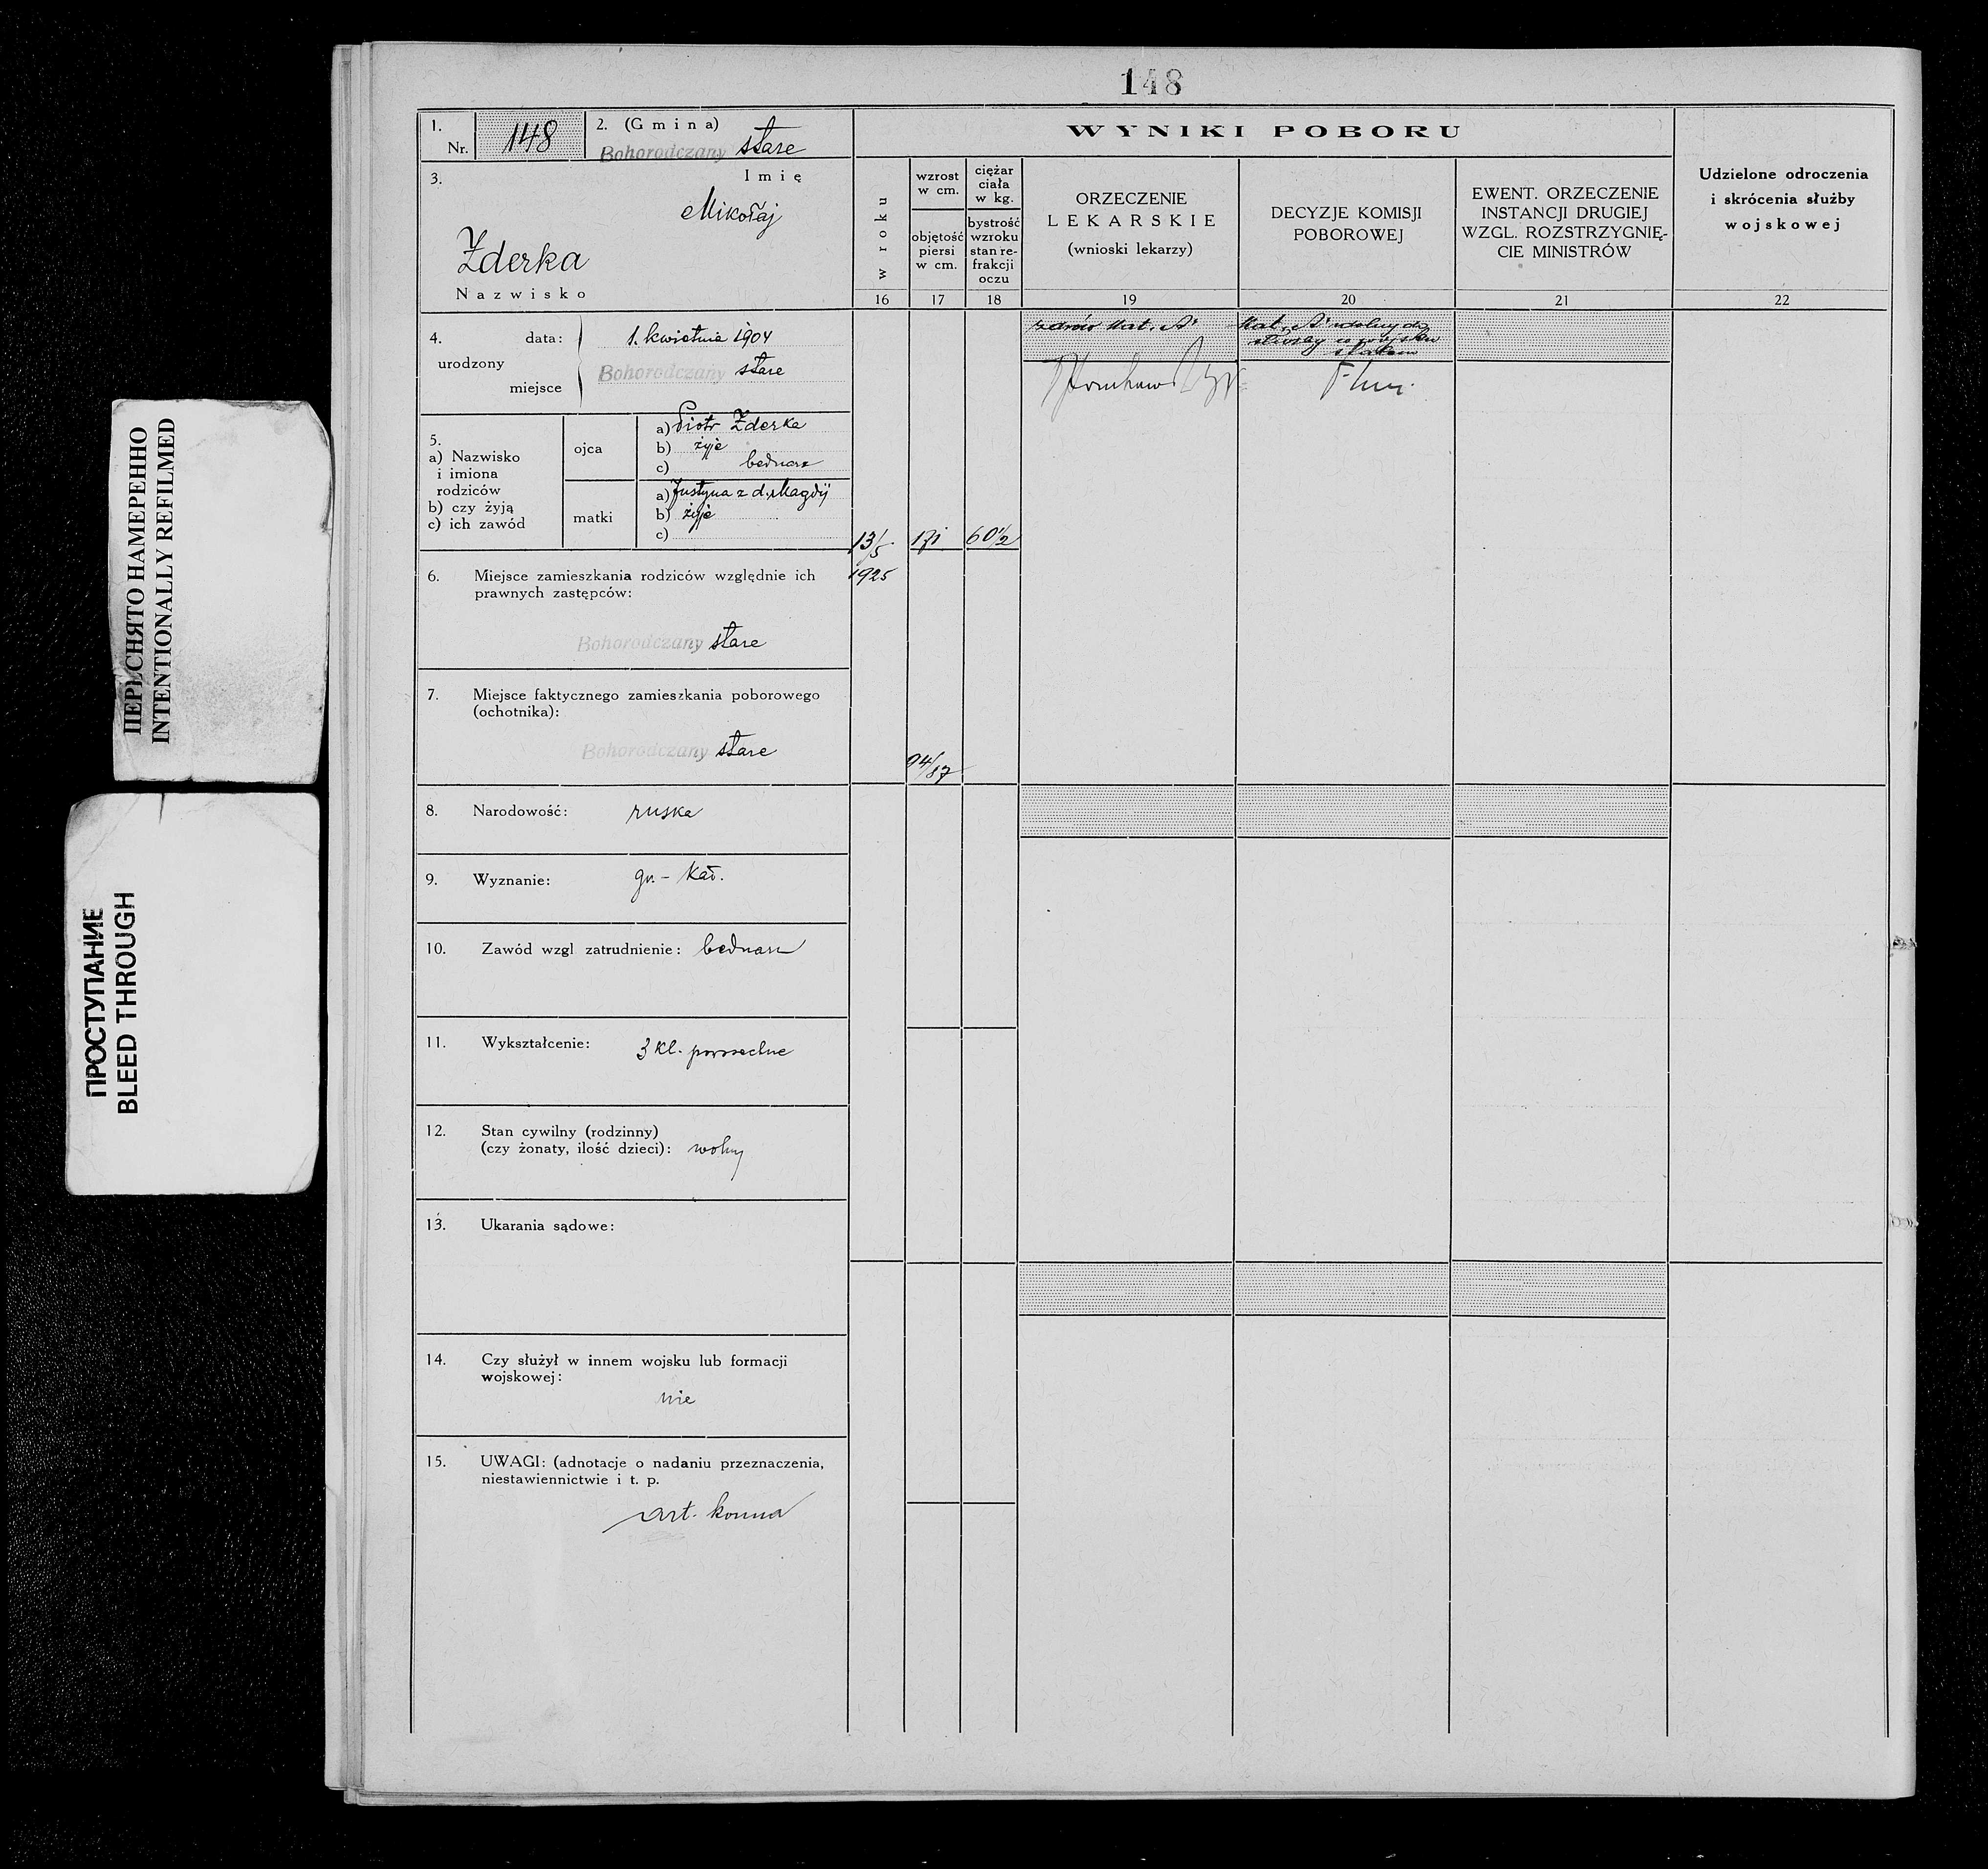 148
1.
Nr. 148
2. (Gmina)
Bohorodczany stare
3.
Imię
Mikołaj
Zderka
Nazwisko
4.
urodzony
data: 1. kwietnia 1904
miejsce Bohorodczany stare
5.
a) Nazwisko
i imiona
rodziców
b) czy żyją
c) ich zawód
ojca
a) Piotr Zderka
b) żyje
c) bednarz
matki
a) Justyna z d. Magdij
b) żyje
c)
6. Miejsce zamieszkania rodziców względnie ich
prawnych zastępców:
Bohorodczany stare
7. Miejsce faktycznego zamieszkania poborowego
(ochotnika):
Bohorodczany stare
8. Narodowość: ruska
9. Wyznanie: gr. - kat.
10. Zawód wzgl zatrudnienie: bednarz
11. Wykształcenie: 3 kl. powszechne
12. Stan cywilny (rodzinny)
(czy żonaty, ilość dzieci): wolny
13. Ukarania sądowe:
14. Czy służył w innem wojsku lub formacji
wojskowej:
nie
15. UWAGI: (adnotacje o nadaniu przeznaczenia,
niestawiennictwie i t. p.
art. konna
WYNIKI POBORU
w roku
16
13/5
1925
wzrost
w cm.
objętość
piersi
w cm.
17
171
94/87
ciężar
ciała
w kg.
bystrość
wzroku
stan re-
frakcji
oczu
18
60 1/2
ORZECZENIE
LEKARSKIE
(wnioski lekarzy)
19
zdrów kat. A
DECYZJE KOMISJI
POBOROWEJ
20
Kat. A zdolny do
służby w wojsku
stałem
EWENT. ORZECZENIE
INSTANCJI DRUGIEJ
WZGL. ROZSTRZYGNIĘ-
CIE MINISTRÓW
21
Udzielone odroczenia
i skrócenia służby
wojskowej
22
ПЕРЕСНЯТО НАМЕРЕННО
INTENTIONALLY REFILMED
ПРОСТУПАНИЕ
BLEED THROUGH